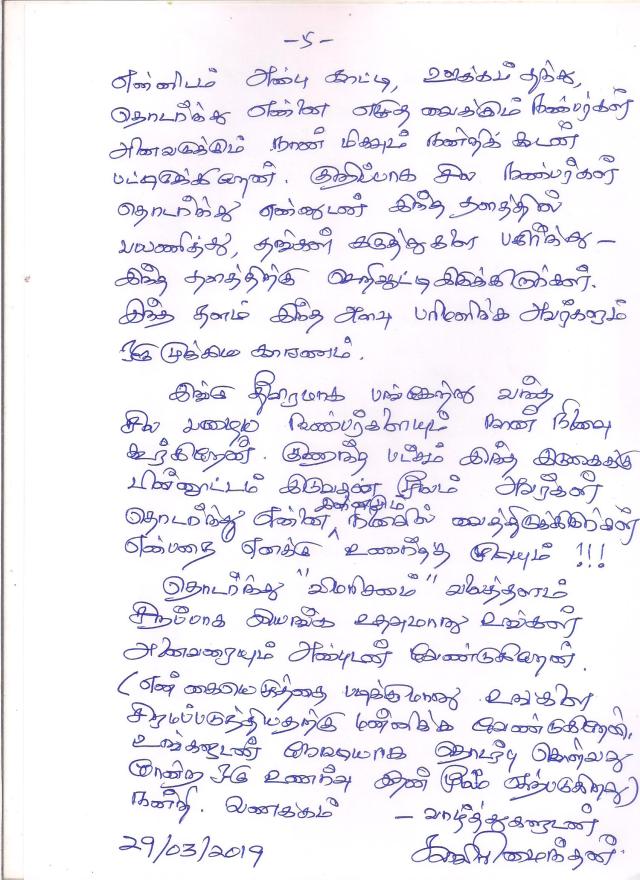 -5-
என்னிடம் அன்பு காட்டி, ஊக்கம் தந்து,
தொடர்ந்து என்னை எழுத வைக்கும் நண்பர்கள்
அனைவருக்கும் நான் மிகவும் நன்றிக் கடன்
பட்டிருக்கிறேன். குறிப்பாக சில நண்பர்கள்
தொடர்ந்து என்னுடன் இந்த தளத்தில்
பயணித்து, தங்கள் கருத்துகளை பகிர்ந்து -
இந்த தளத்திற்கு மெருகூட்டி இருக்கிறார்கள்.
இந்த தளம் இந்த அளவு பரிமளிக்க அவர்களும்
ஒரு முக்கிய காரணம்.
இங்கு தீவிரமாக பங்கேற்று வந்த
சில பழைய நண்பர்களையும் நான் நினைவு
கூர்கிறேன். குறைந்த பட்சம் இந்த இடுகைக்கு
பின்னூட்டம் இடுவதன் மூலம் அவர்கள்
தொடர்ந்து என்னை இன்னமும் நினைவில் வைத்திருக்கிறார்கள்
என்பதை எனக்கு உணர்த்த முடியும் !!!
தொடர்ந்து "விமரிசனம்" வலைத்தளம்
சிறப்பாக இயங்க உதவுமாறு உங்கள்
அனைவரையும் அன்புடன் வேண்டுகிறேன்.
(என் கையெழுத்தை படிக்குமாறு உங்களை
சிரமப்படுத்தியதற்கு மன்னிக்க வேண்டுகிறேன்.
உங்களுடன் நேரடியாக தொடர்பு கொள்வது
போன்ற ஒரு உணர்வு இதன் மூலம் ஏற்படுகிறது)
நன்றி. வணக்கம் - வாழ்த்துகளுடன்
29/03/2019 காவிரிமைந்தன்